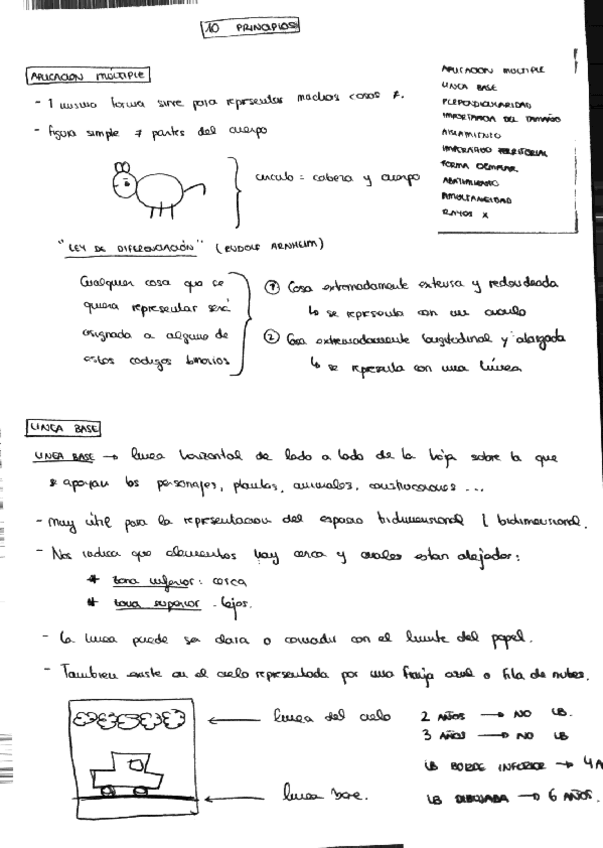 10 PRINCIPIOS
APLICACIÓN MÚLTIPLE
- 1 misma forma sirve para representar muchas cosas ≠.
- figura simple ≠ partes del cuerpo
circulo = cabeza y cuerpo
APLICACION MULTIPLE
LINEA BASE
PERPENDICULARIDAD
IMPORTANCIA DEL TAMAÑO
AISLAMIENTO
IMPERATIVO TERRITORIAL
FORMA EJEMPLAR
ABATIMIENTO
SIMULTANEIDAD
RAYOS X
"LEY DE DIFERENCIACIÓN" (RUDOLF ARNHEIM)
Cualquier cosa que se
quiera representar será
asignada a alguno de
estos codigos binarios
① Cosa extremadamente extensa y redondeada
↳ se representa con un circulo
② Cosa extremadamente longitudinal y alargada
↳ se representa con una línea
LINEA BASE
LINEA BASE → linea horizontal de lado a lado de la hoja sobre la que
se apoyan los personajes, plantas, animales, construcciones ...
- Muy útil para la representacion del espacio bidimensional / bidimensional.
- Nos indica que elementos hay cerca y cuales estan alejados:
* zona inferior: cerca
* zona superior - lejos.
- La linea puede ser clara o coincidir con el limite del papel.
- Tambien existe en el cielo representada por una franja azul o fila de nubes.
linea del cielo
linea base.
2 AÑOS → NO LB.
3 AÑOS → NO LB
LB BORDE INFERIOR → 4 A
LB DIBUJADA → 6 AÑOS.